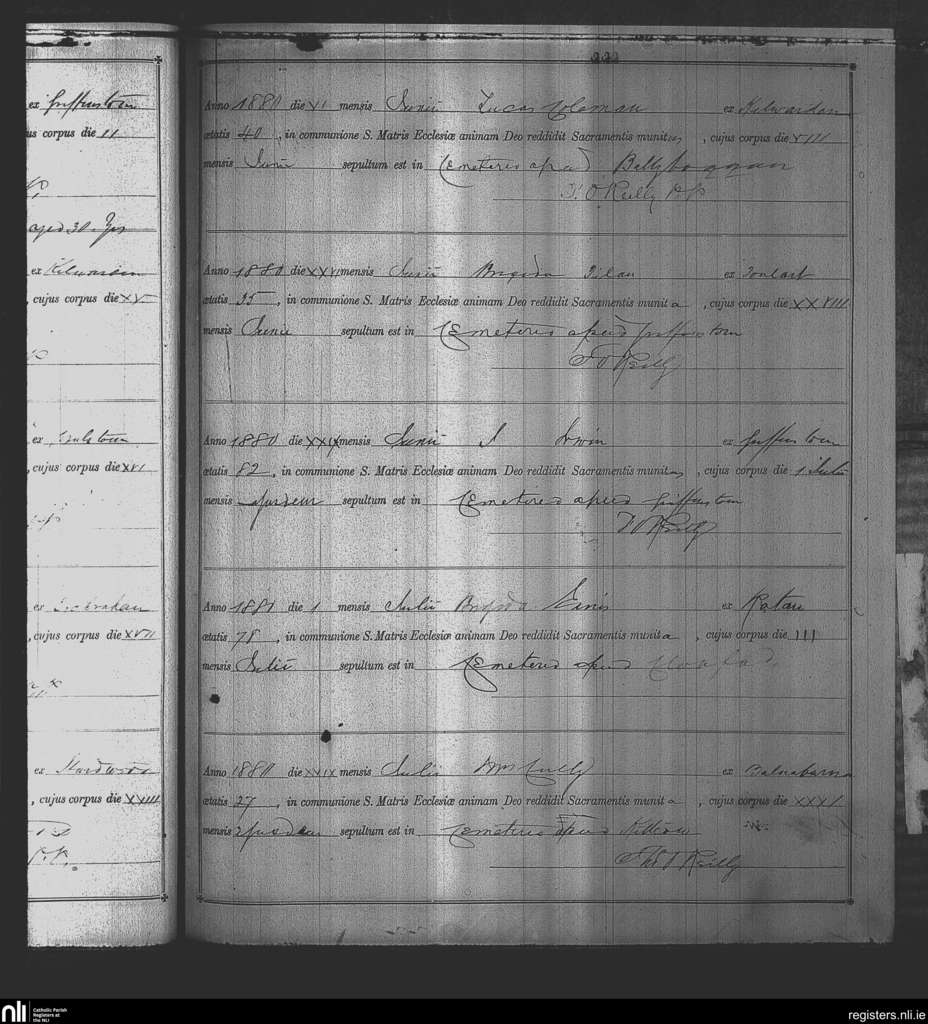 ex Guffenstown
us corpus die 11
aged 30. Yrs
ex Kilwarden
, cujus corpus die XV
ex
, cujus corpus die XVI
ex
, cujus corpus die XVII
ex
, cujus corpus die XXIII
P.P.
222
Anno 1880 die XI mensis Junii Lucas Coleman ex Kilwarden
ætatis 40, in communione S. Matris Ecclesiæ animam Deo reddidit Sacramentis munitus, cujus corpus die XIII
mensis Junii sepultum est in Cemeterio apud Ballyboggan
T. O Reilly P.P
Anno 1880 die XXVI mensis Junii Brigida ex
ætatis 35, in communione S. Matris Ecclesiæ animam Deo reddidit Sacramentis munita, cujus corpus die XXVIII
mensis Junii sepultum est in Cemeterio apud Guffenstown
T O Reilly
Anno 1880 die XXIX mensis Junii J Irwin ex Guffenstown
ætatis 82, in communione S. Matris Ecclesiæ animam Deo reddidit Sacramentis munitus, cujus corpus die 1 Julii
mensis ejusdem sepultum est in Cemeterio apud Guffenstown
T O Reilly
Anno 1881 die 1 mensis Julii Brigida Ennis ex Ratan
ætatis 78, in communione S. Matris Ecclesiæ animam Deo reddidit Sacramentis munita, cujus corpus die III
mensis Julii sepultum est in Cemeterio apud
Anno 1880 die XXIX mensis Julii Cully ex
ætatis 27, in communione S. Matris Ecclesiæ animam Deo reddidit Sacramentis munita, cujus corpus die XXXI
mensis Ejusdem sepultum est in Cemeterio apud
Ths O Reilly
nli Catholic Parish
Registers at
the NLI
registers.nli.ie